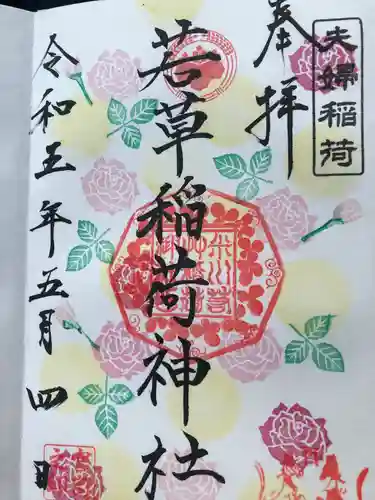 夫婦稲荷
奉拝
若草稲荷神社
令和五年五月四日